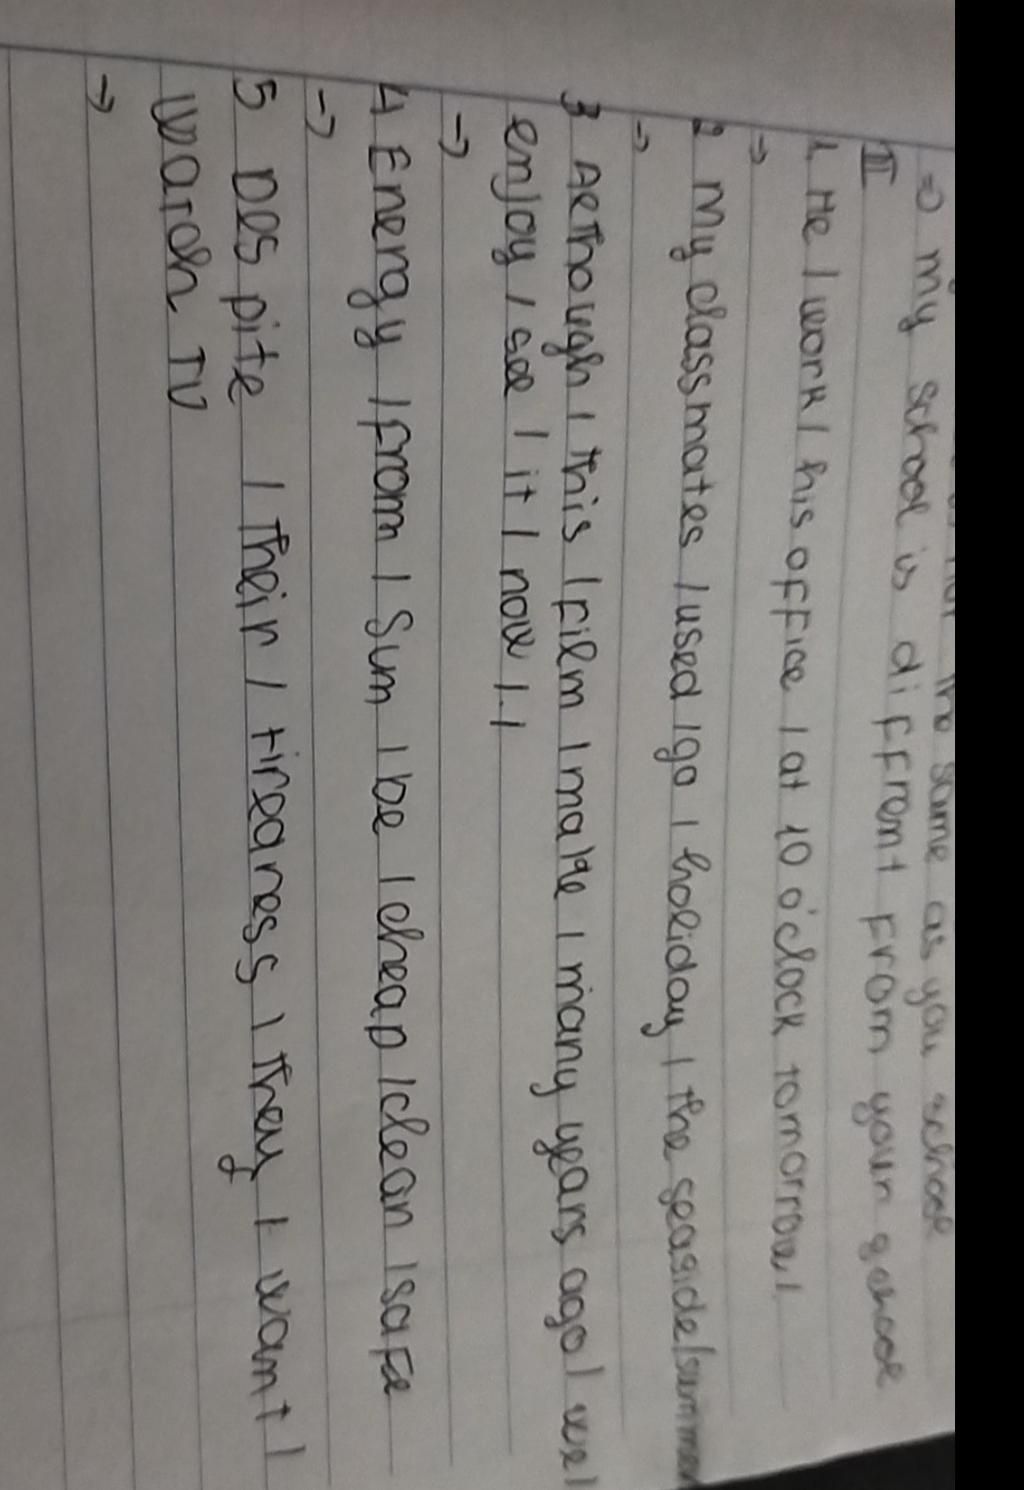 the same as you school
=> my school is diffrent from your school
II
1. He / work / his office / at 10 o'clock tomorrow /
→
2 My classmates / used / go / holiday / the seaside / summer
→
3 Although / this / film / make / many years ago / we /
enjoy / see / it / now / . /
→
4 Energy / from / Sum / be / cheap / clean / safe
→
5 Despite / their / tireaness / they / want /
watch TV
→